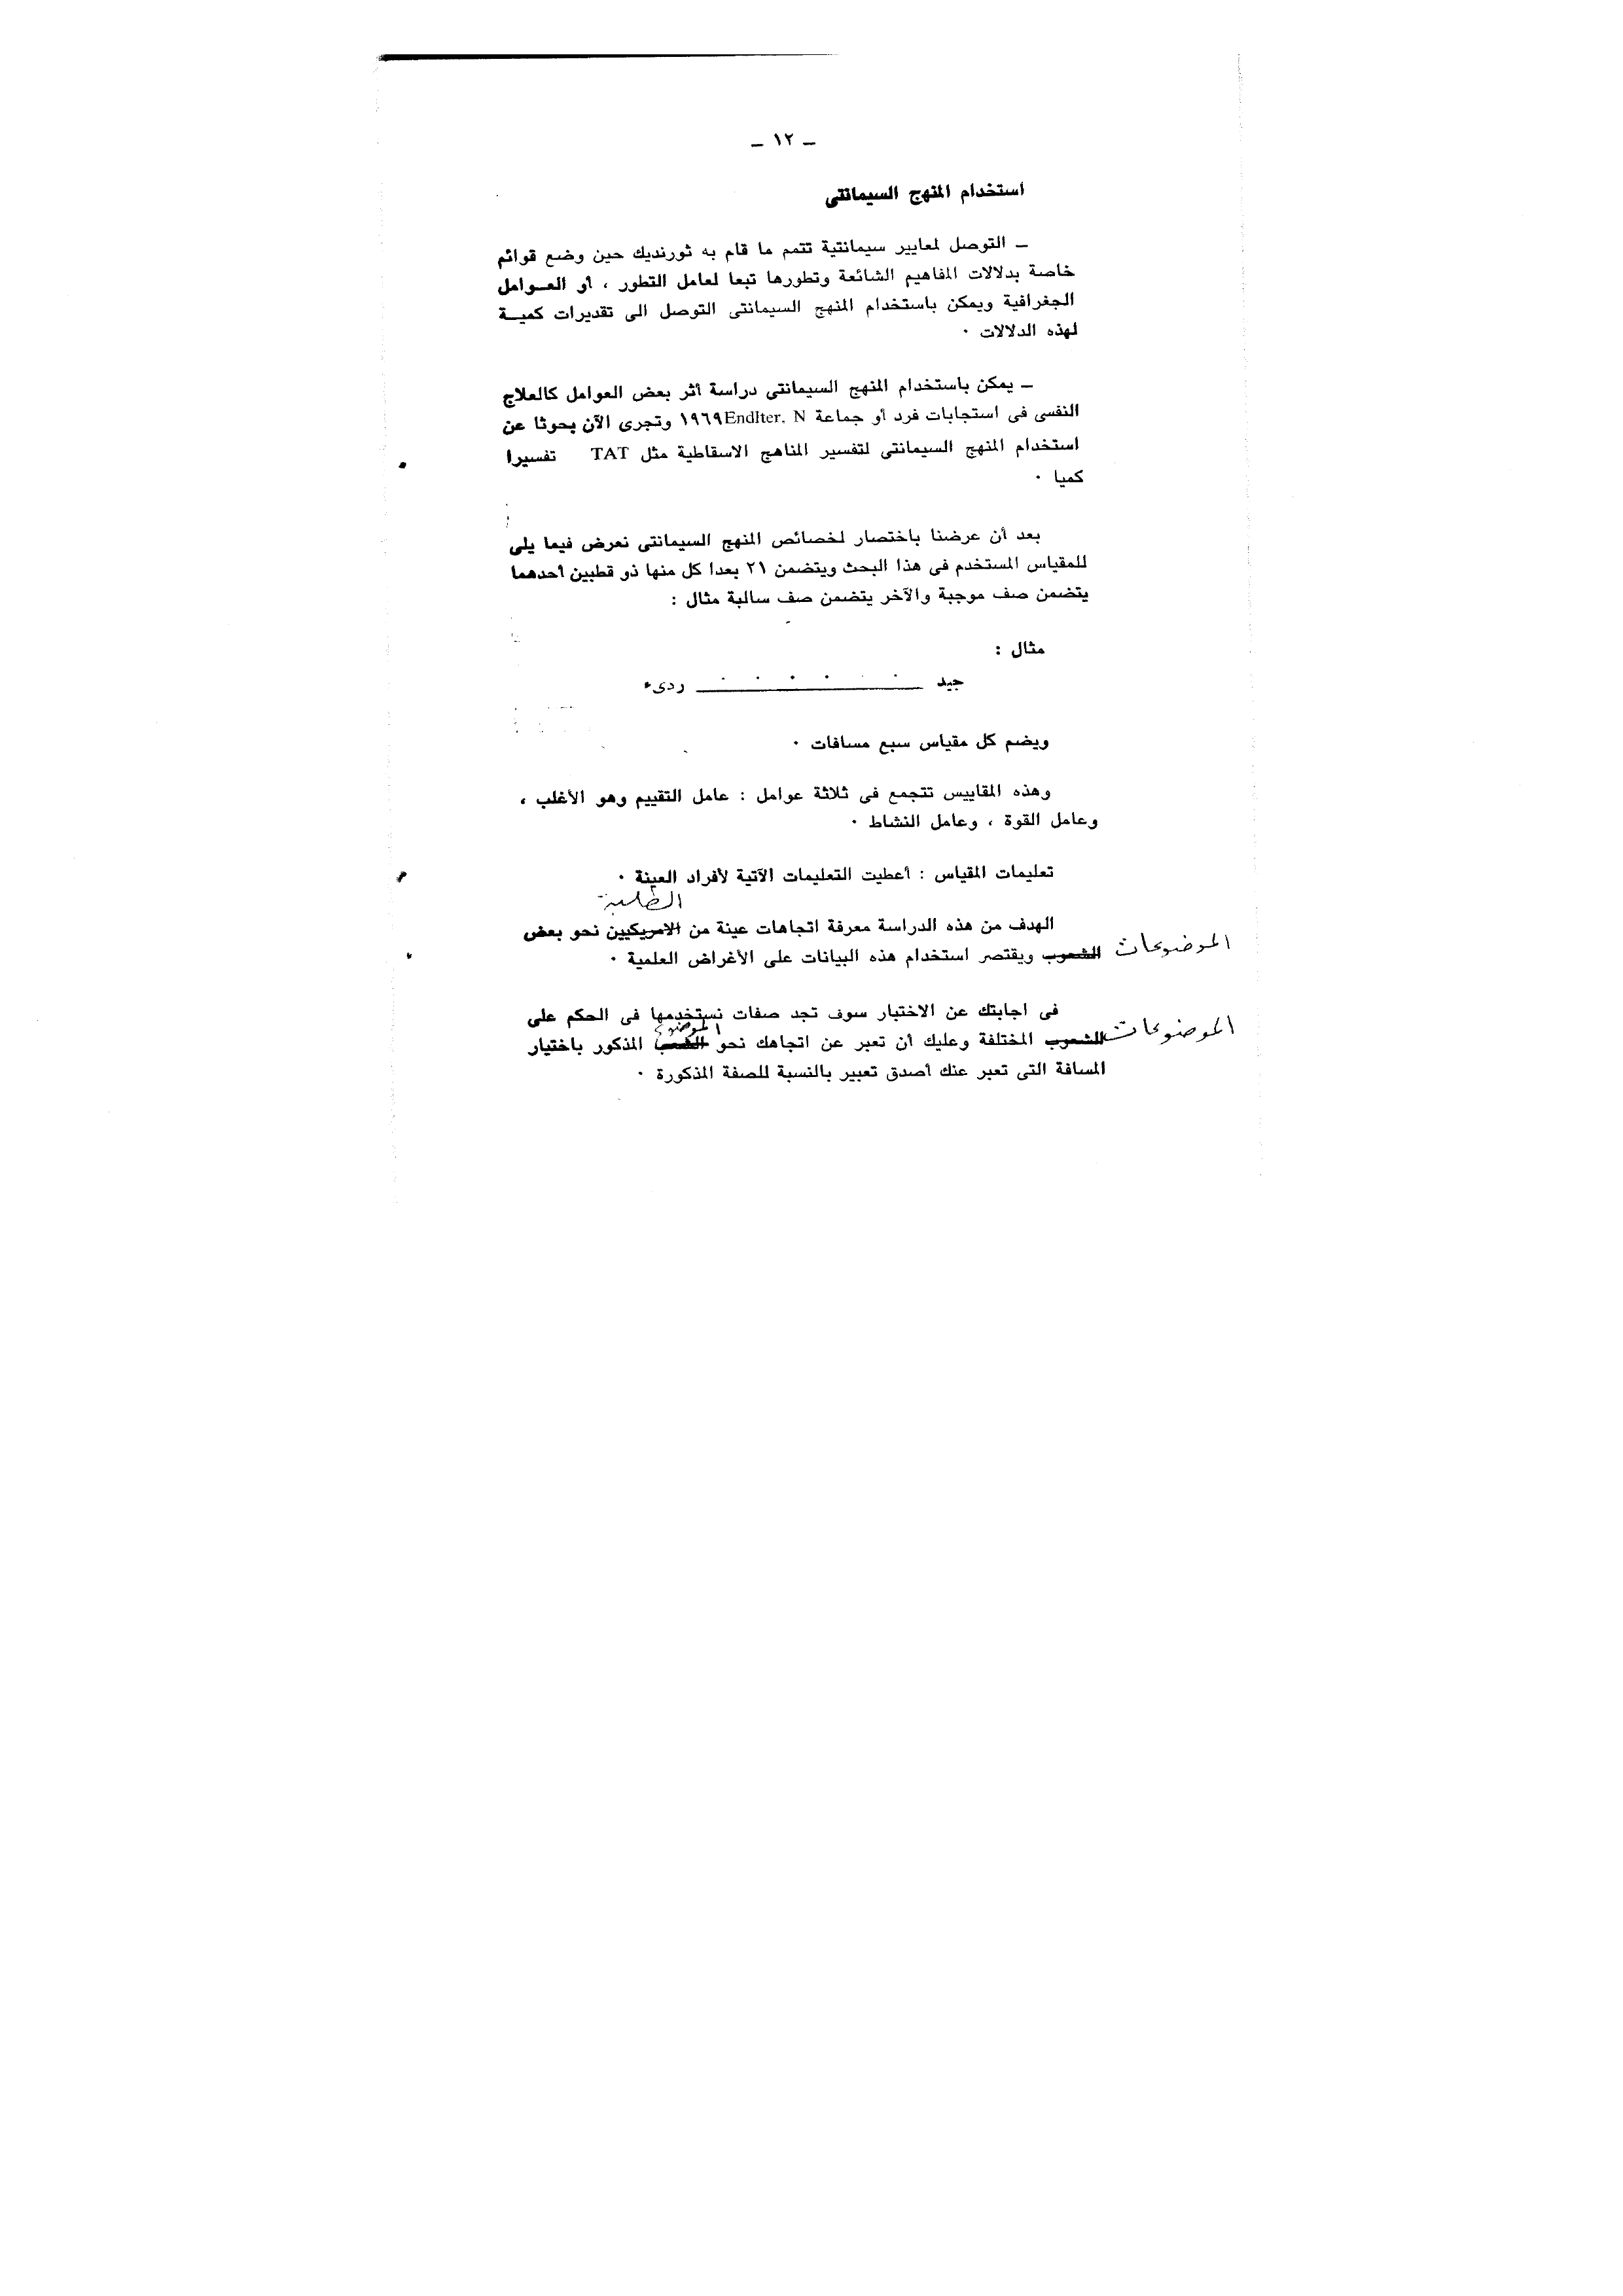 ـ ١٢ ـ
استخدام المنهج السيمانتى
ـ التوصل لمعايير سيمانتية تتمم ما قام به ثورنديك حين وضع قوائم
خاصة بدلالات المفاهيم الشائعة وتطورها تبعا لعامل التطور ، أو العـوامل
الجغرافية ويمكن باستخدام المنهج السيمانتى التوصل الى تقديرات كميـة
لهذه الدلالات ٠
ـ يمكن باستخدام المنهج السيمانتى دراسة أثر بعض العوامل كالعلاج
النفسى فى استجابات فرد أو جماعة Endlter. N ١٩٦٩ وتجرى الآن بحوثا عن
استخدام المنهج السيمانتى لتفسير المناهج الاسقاطية مثل TAT تفسيرا
كميا ٠
بعد أن عرضنا باختصار لخصائص المنهج السيمانتى نعرض فيما يلى
للمقياس المستخدم فى هذا البحث ويتضمن ٢١ بعدا كل منها ذو قطبين أحدهما
يتضمن صف موجبة والآخر يتضمن صف سالبة مثال :
مثال :
جيد ــــــــــــــــ ردىء
ويضم كل مقياس سبع مسافات ٠
وهذه المقاييس تتجمع فى ثلاثة عوامل : عامل التقييم وهو الأغلب ،
وعامل القوة ، وعامل النشاط ٠
تعليمات المقياس : أعطيت التعليمات الآتية لأفراد العينة ٠
الطلبة
الهدف من هذه الدراسة معرفة اتجاهات عينة من الامريكيين نحو بعض
الموضوعات الشعوب ويقتصر استخدام هذه البيانات على الأغراض العلمية ٠
فى اجابتك عن الاختبار سوف تجد صفات نستخدمها فى الحكم على
الموضوع
الموضوعات الشعوب المختلفة وعليك أن تعبر عن اتجاهك نحو الشعب المذكور باختيار
المسافة التى تعبر عنك أصدق تعبير بالنسبة للصفة المذكورة ٠